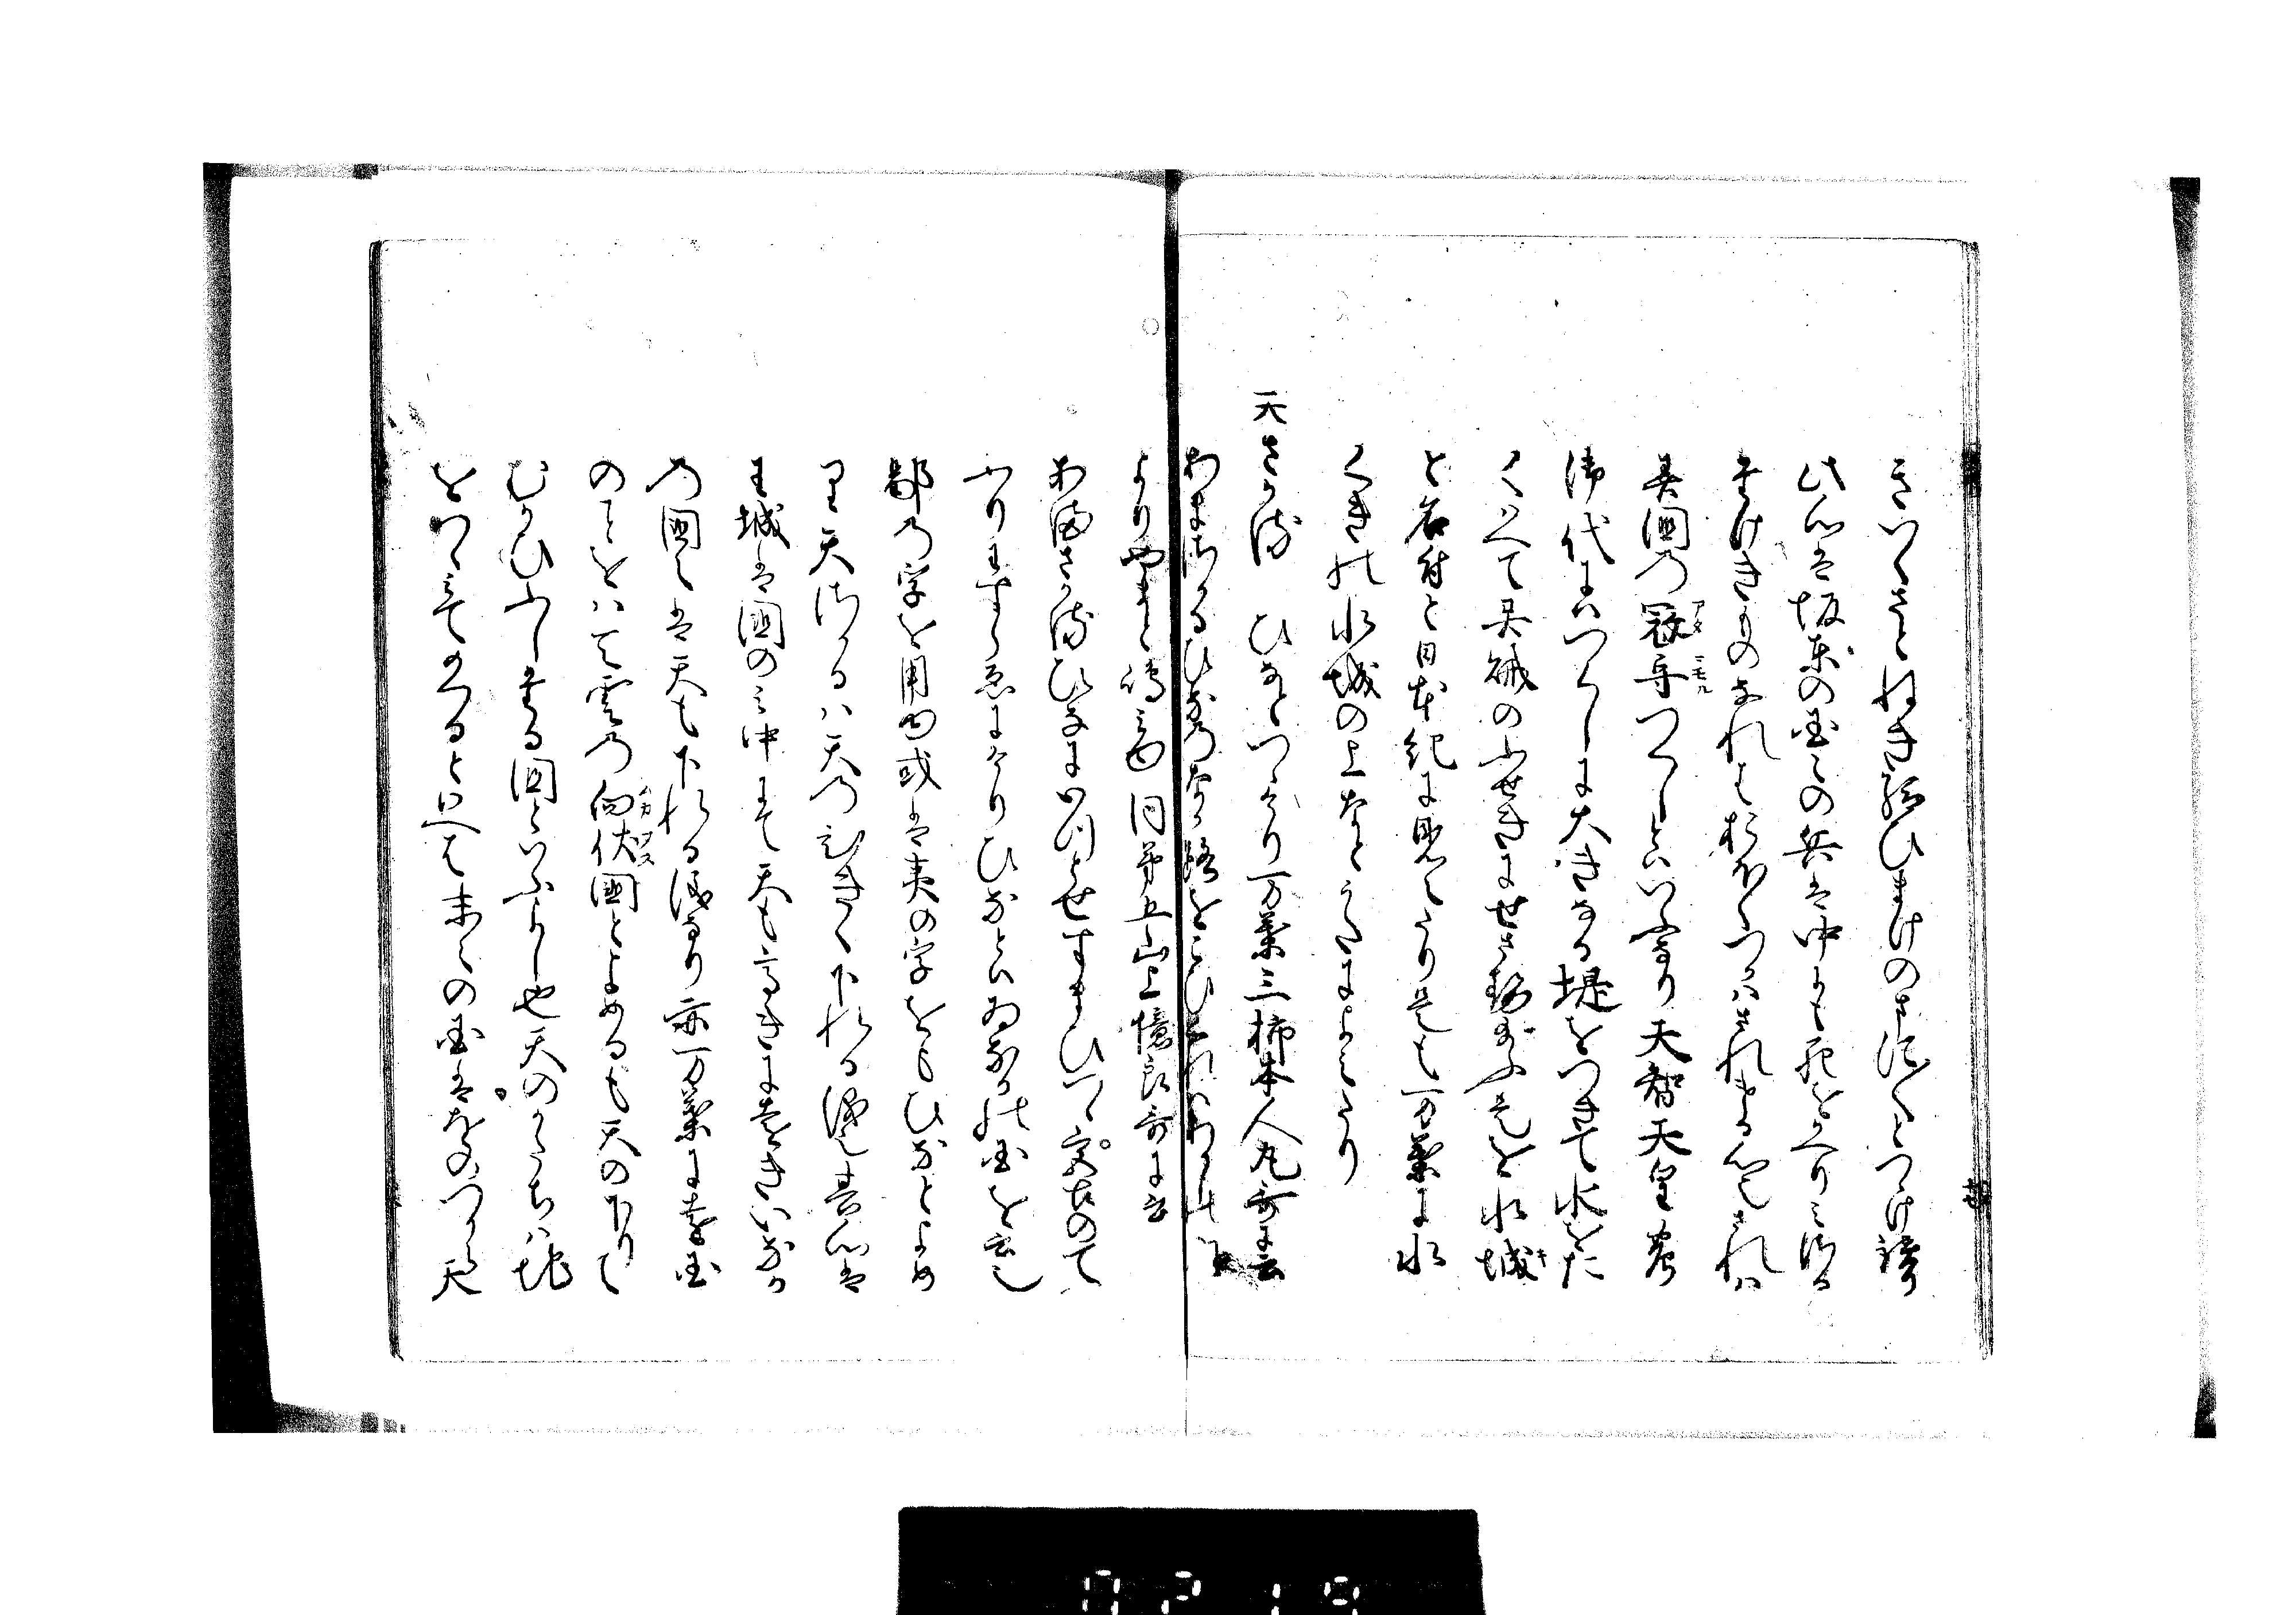 きいくさとねき給ひまけのまに〳〵とつけ
此心は坂東の国々の兵は中にも死をかへりみさる
たけきものなれはおほくつかはされける也されは
異国の冦守つくしといふなり天智天皇
アタ マモル
御代にはつくしに大きなる堤をつきて水をた
くはへて異賊のふせきにせさせ給ふ是を水城
き
と名付と日本紀に見えたり是も万葉に水
くきの水城の上なとうたによみたり
天さかる ひなとつゝけり万葉三柿本人丸哥に云
あまさかるひなのなか路をこひくれはあかしの
よりやまと嶋みゆ同第五山上憶良哥に云
あまさかるひなに五とせすまひつゝ
都のて
ふりわすらえにけりひなとはゐなかの国を云
鄙の字を用る或は夷の字をもひなとよめ
り天さかるは天のひきく下れる也其心は
王城は国のみ中にて天も高きに遠きいなか
の国々は天も下れる儀なり亦万葉に遠国
のことをいはて雲の向伏国とよめるも天の下りて
ムカフス
むかひふしたる国といふよし也天のかたちは地
をつゝみてめくるといへは末々の国はをのつから天